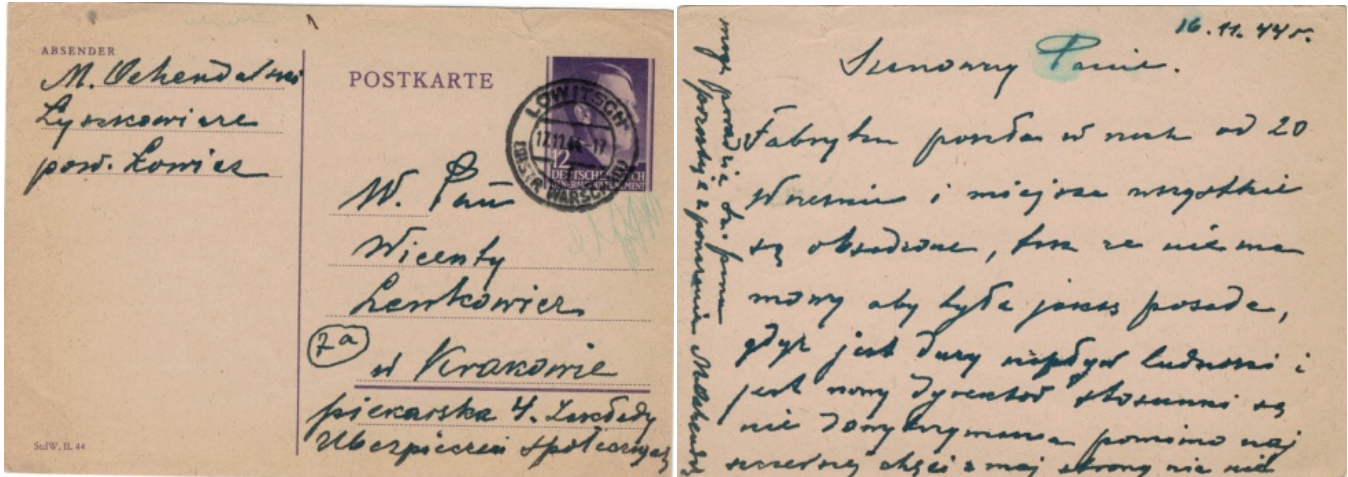 ABSENDER
M. Ochendalski
Łyszkowice
pow. Łowicz
POSTKARTE
LOWITSCH
17.11.44-17
(DISTR. WARSCHAU)
12
DEUTSCHES REICH
GENERALGOUVERNEMENT
W. Pan
Wicenty
Lenkowicz
7a
w Krakowie
piekarska 4. Zakłady
Ubezpieczeń Społecznych
StdW, II. 44
16.11.44 r.
Szanowny Panie.
Fabryka poszła w ruch od 20
Września i miejsca wszystkie
są obsadzone, tak ze niema
mowy aby była jakaś posada,
gdyż jest duży napływ ludności i
jest nowy dyrektor stosunki są
nie do wytrzymania pomimo naj
szczerszej chęci z mej strony nic nie
mogę poradzić dla pana
pozostaję z poważaniem